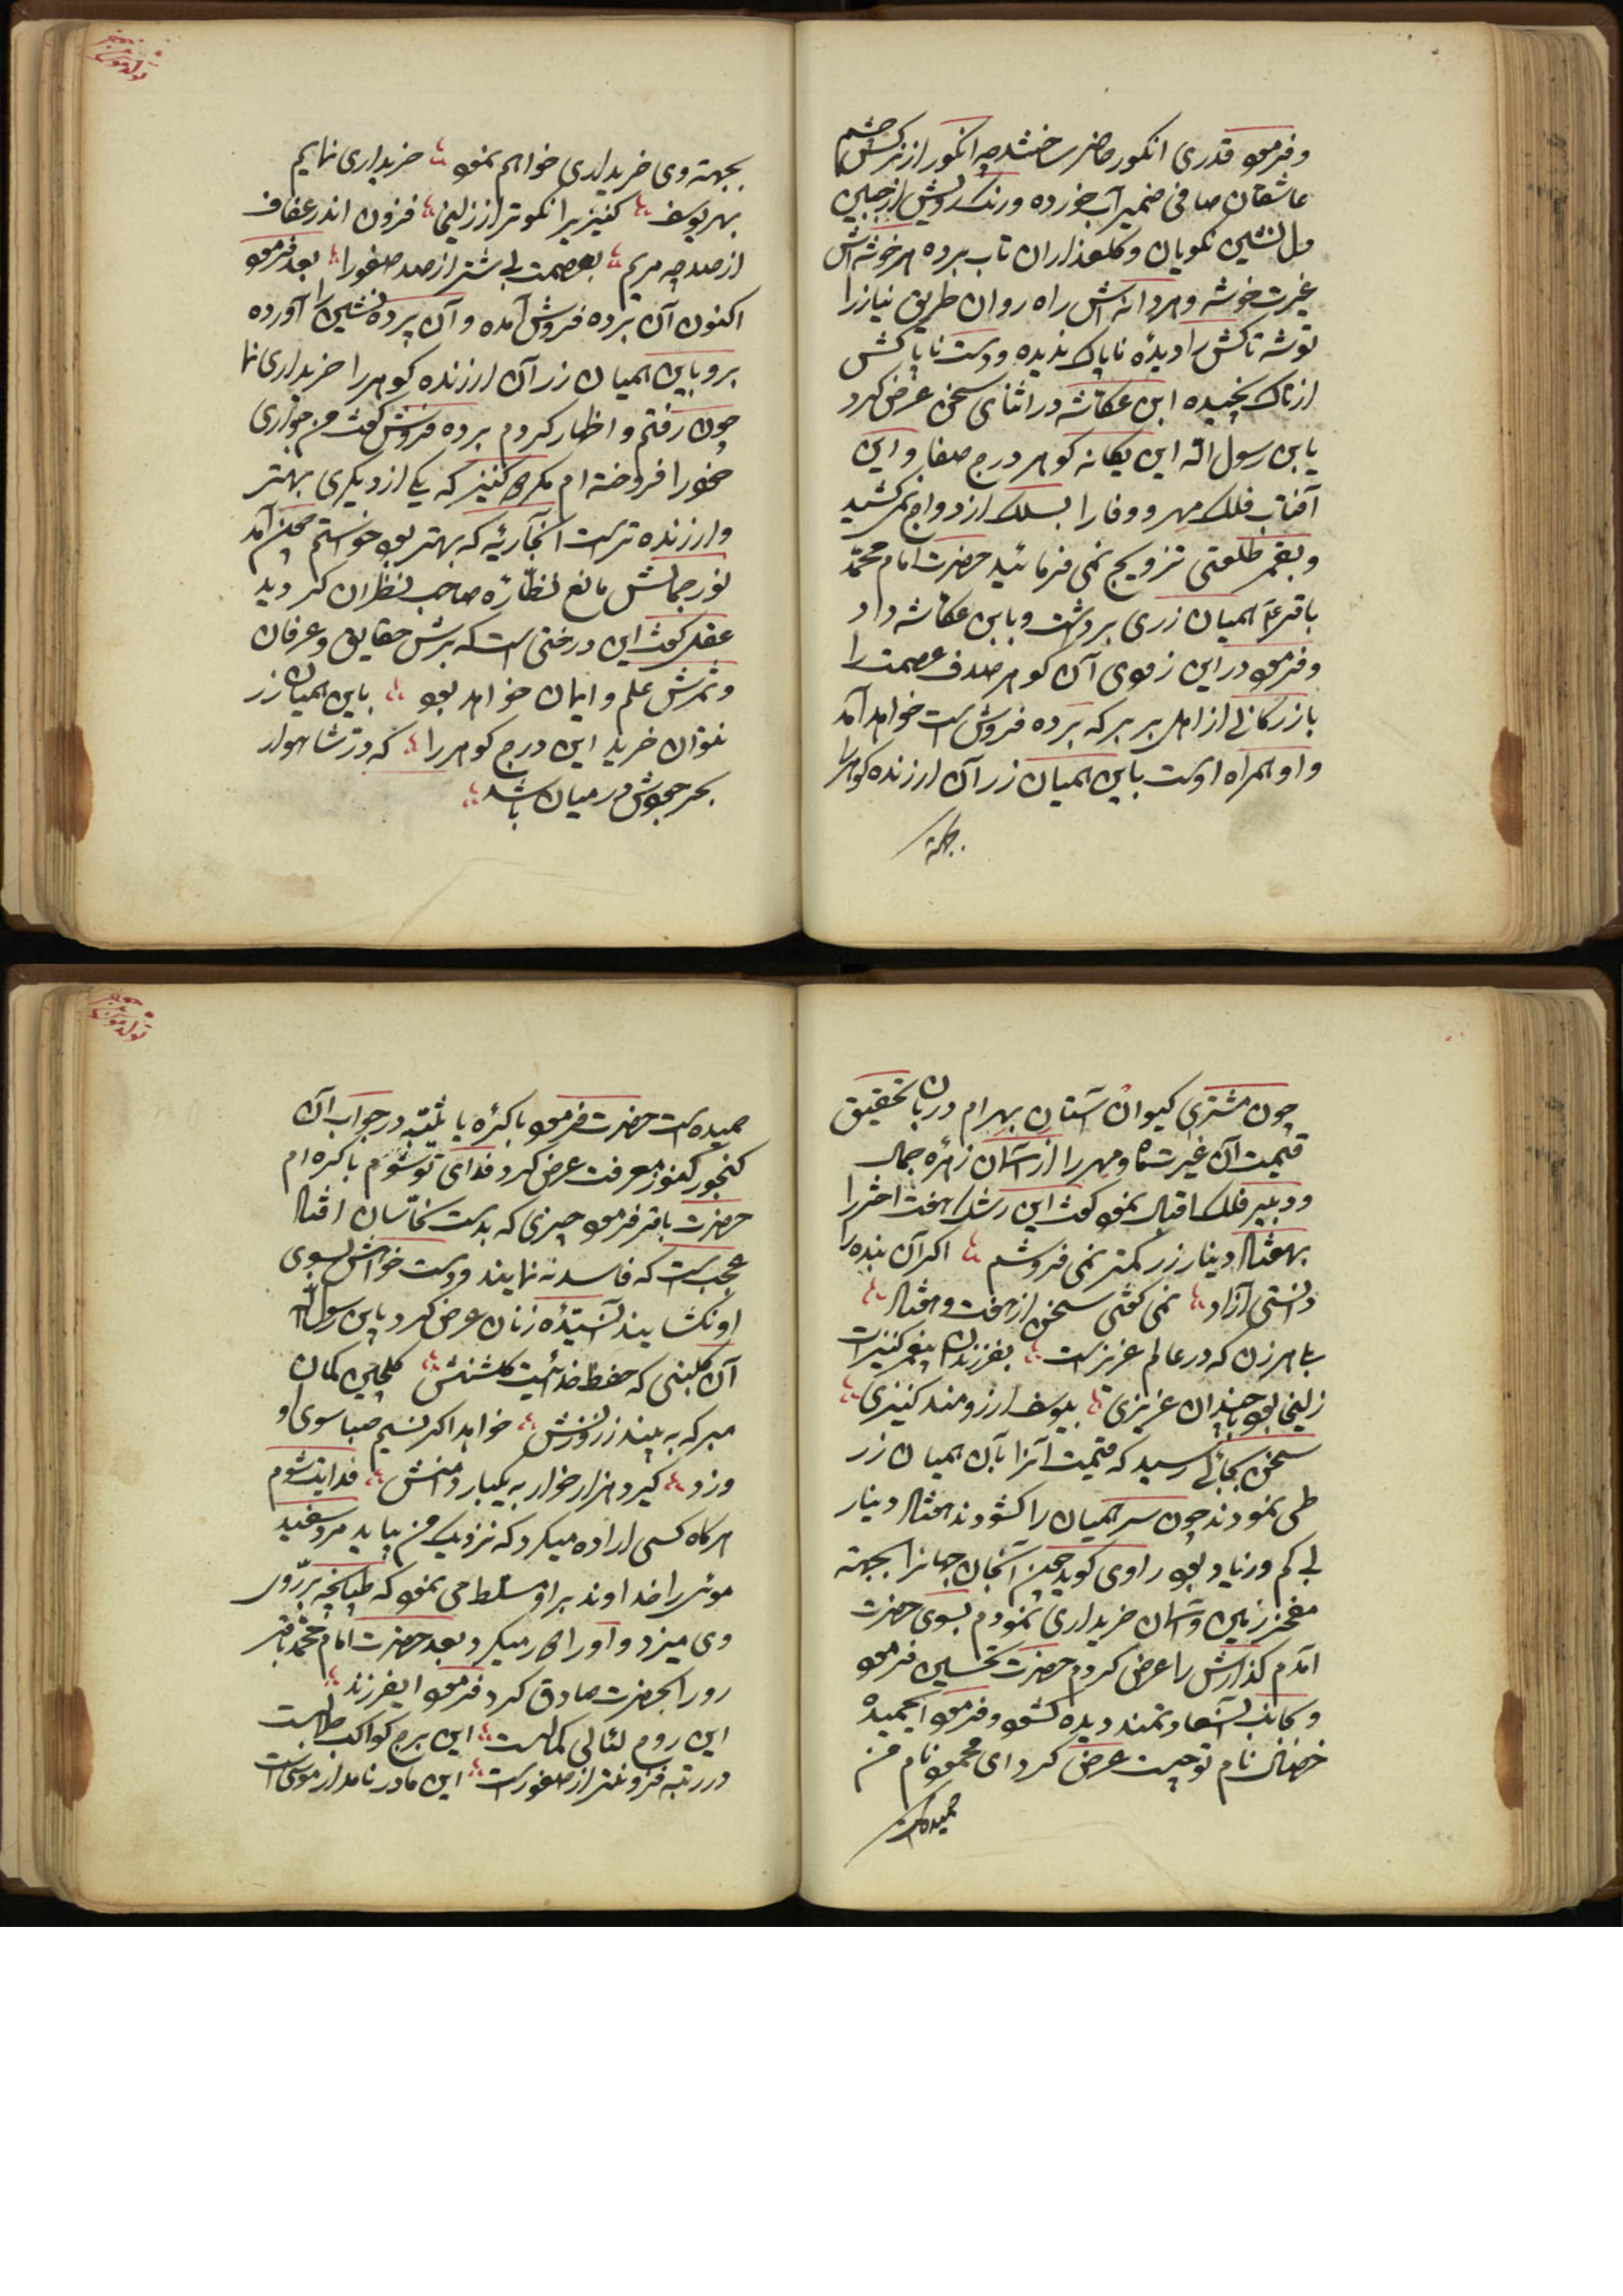 و فرمود قدری انکور حاضر ساختند چه انکور از نرکس چشم
عاشقان صافی ضمیر آب خورده و رنک رویش از جبین
دل نشین نکویان و کلعذاران تاب برده هر خوشه اش
غیرت خوشه و هر دانه اش راه روان طریق نیاز را
توشه تاکش را دیدۀ ناپاک ندیده و دست ناپاکش
از تاک نچیده ابن عکاشه در اثنای سخن عرض کرد
یابن رسول الله این یکانه کوهر درج صفا و این
آفتاب فلک مهر و وفا را بسلک ازدواج نمی کشید
و بقمر طلعتی تزویج نمی فرمائید حضرت امام محمّد
باقر ع همیان زری برداشت و بابن عکاشه داد
و فرمود در این زودی آن کوهر صدف عصمت را
بازرکانی از اهل بربر که برده فروش است خواهد آمد
و او همراه اوست باین همیان زر آن ارزنده کوهر را
بجهة
تولد موسی
بجهة وی خریداری خواهم نمود خریداری نمایم
بهر یوسف کنیزیرا نکوتر از زلیخا فزون اندر عفاف
از صد چه مریم بعصمت بیشتر از صد صفورا بعد فرمود
اکنون آن برده فروش آمده و آن پرده نشین را آورده
برو باین همیان زر آن ارزنده کوهر را خریداری نما
چون رفتم و اظهار کردم برده فروش کفت من جواری
خود را فروخته ام مکر دو کنیز که یکی از دیکری بهتر
و ارزنده تر است آنجاریۀ که بهتر بود خواستم چون آمد
نور جمالش مانع نظّارۀ صاحب نظران کردید
عقل کفت این درختی است که برش حقایق و عرفان
و ثمرش علم و ایمان خواهد بود باین همیان زر
نتوان خرید این درج کوهر را که درّ شاهوار
بحر جودش در میان باشد
چون مشتری کیوان آستان بهرام دربان تحقیق
قیمت آن غیرت ماه و مهر را از آسمان زهره جمال
و دبیر فلک اقبال نمود کفت این رشک هفت اختر را
بهفتاد دینار زر کمتر نمی فروشم اکر آن بنده را
دانستی آزاد نمی کفتی سخن از هفت و هفتاد
بلی هر زن که در عالم عزیز است بفرزندان پیغمبر کنیز است
زلیخا بود با چندان عزیزی بیوسف آرزومند کنیزی
سخن بجائی رسید که قیمت آنرا بآن همیان زر
طی نمودند چون سر همیان را کشودند هفتاد دینار
بی کم و زیاد بود راوی کوید چون آنجان جهانرا بجهة
مفخر زمین و آسمان خریداری نمودم بسوی حضرت
آمدم کذارش را عرض کردم حضرت تحسین فرمود
و بجانب آن سعادتمند دیده کشود و فرمود ایحمیده
خصال نام تو چیست عرض کرد ای محمود نام من
حمیده است
تولد موسی
حمیده است حضرت فرمود باکرۀ یا ثیّبه در جواب آن
کنجور کنوز معرفت عرض کرد فدای تو شوم باکره ام
حضرت باقر فرمود چیزی که بدست نخّاسان افتاد
عجب است که فاسد نه نمایند و دست خواهش بسوی
او نکشایند آن ستیدۀ زنان عرض کرد یابن رسول الله
آن کلبنی که حفظ خدائیست کلشنش کلچین کمان
مبر که به بیند ز روزنش خواهد اکر نسیم صبا سوی او
وزد کیرد هزار خوار به یکبار دامنش فدایت شوم
هرکاه کسی اراده میکرد که نزدیک من بیاید مرد سفید
موئی را خداوند بر او مسلط می نمود که طپانچه بر روی
وی میزد و او را دور میکرد بعد حضرت امام محمّد باقر
رو را بحضرت صادق کرد فرمود ایفرزند
این درج لئالی کمال است این برج کواکب جلال است
در رتبه فزونتر از صفور است این مادر نامدار موسی است